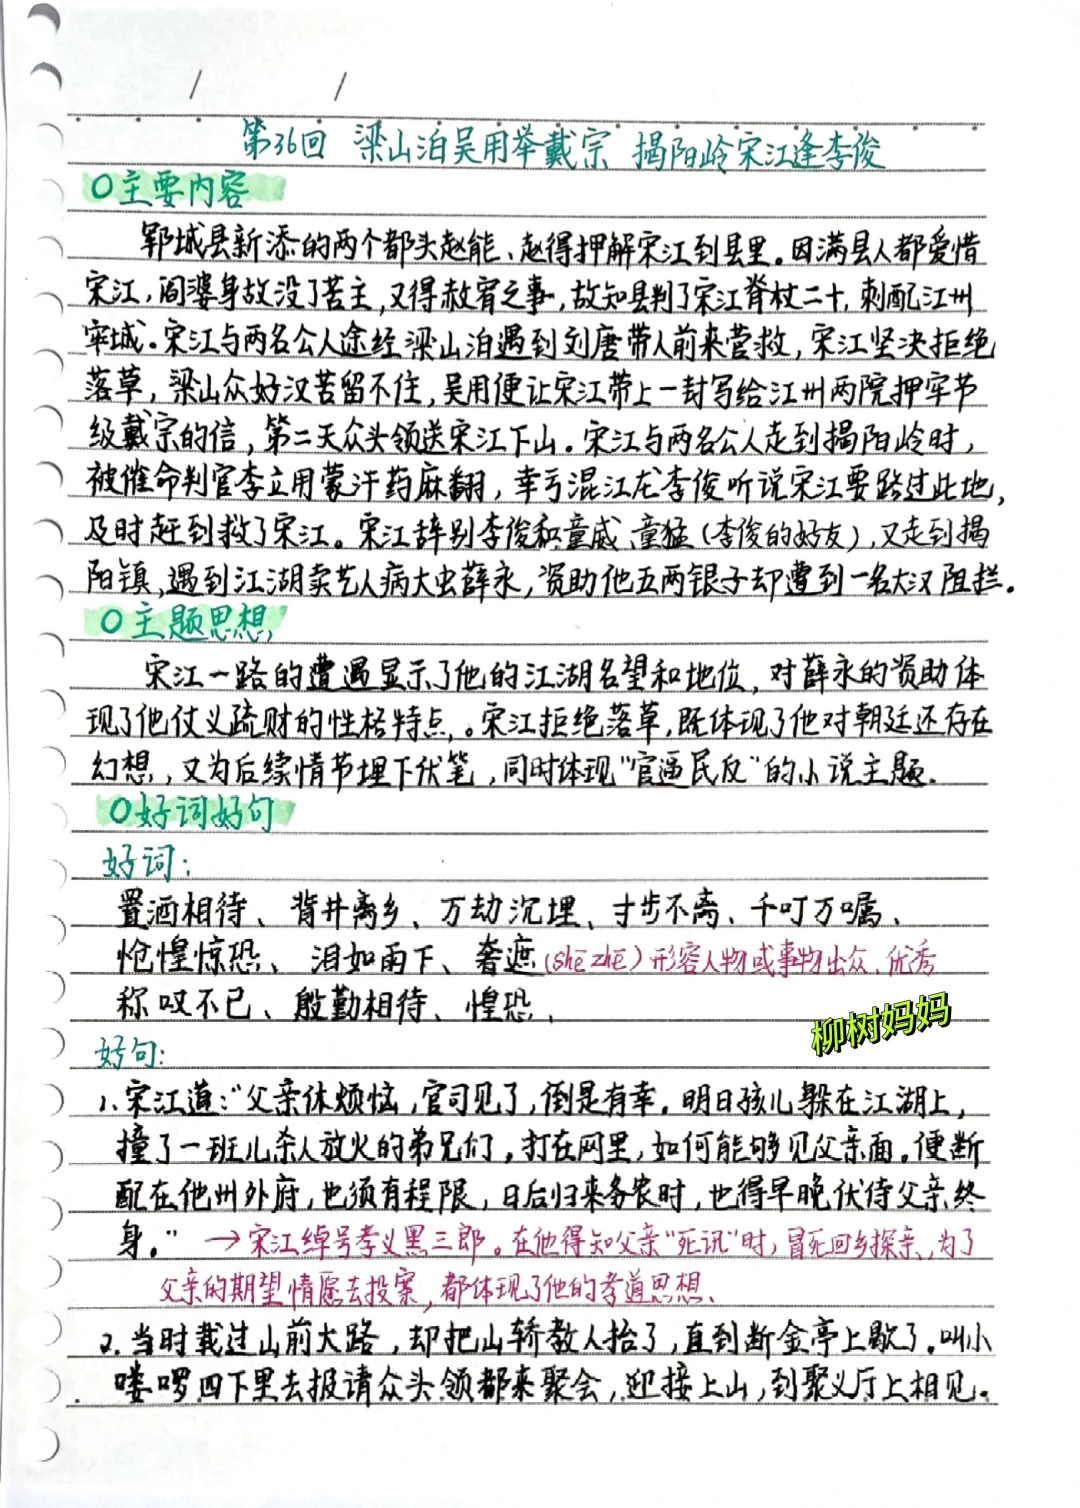 第36回 梁山泊吴用举戴宗 揭阳岭宋江逢李俊
○主要内容
郓城县新添的两个都头赵能、赵得押解宋江到县里。因满县人都爱惜
宋江，阎婆身故没了苦主，又得赦宥之事，故知县判了宋江脊杖二十，刺配江州
牢城。宋江与两名公人途经梁山泊遇到刘唐带人前来营救，宋江坚决拒绝
落草，梁山众好汉苦留不住，吴用便让宋江带上一封写给江州两院押牢节
级戴宗的信，第二天众头领送宋江下山。宋江与两名公人走到揭阳岭时，
被催命判官李立用蒙汗药麻翻，幸亏混江龙李俊听说宋江要路过此地，
及时赶到救了宋江。宋江辞别李俊和童威、童猛（李俊的好友），又走到揭
阳镇，遇到江湖卖艺人病大虫薛永，资助他五两银子却遭到一名大汉阻拦。
○主题思想
宋江一路的遭遇显示了他的江湖名望和地位，对薛永的资助体
现了他仗义疏财的性格特点。宋江拒绝落草，既体现了他对朝廷还存在
幻想，又为后续情节埋下伏笔，同时体现"官逼民反"的小说主题。
○好词好句
好词：
置酒相待、背井离乡、万劫沉埋、寸步不离、千叮万嘱、
怆惶惊恐、泪如雨下、奢遮(shē zhē）形容人物或事物出众、优秀
称叹不已、殷勤相待、惶恐、
柳树妈妈
好句：
1、宋江道："父亲休烦恼，官司见了，倒是有幸。明日孩儿躲在江湖上，
撞了一班儿杀人放火的弟兄们，打在网里，如何能够见父亲面。便断
配在他州外府，也须有程限，日后归来务农时，也得早晚伏侍父亲终
身。" →宋江绰号孝义黑三郎。在他得知父亲"死讯"时，冒死回乡探亲、为了
父亲的期望情愿去投案，都体现了他的孝道思想、
2、当时载过山前大路，却把山轿教人抬了，直到断金亭上歇了。叫小
喽啰四下里去报请众头领都来聚会，迎接上山，到聚义厅上相见。